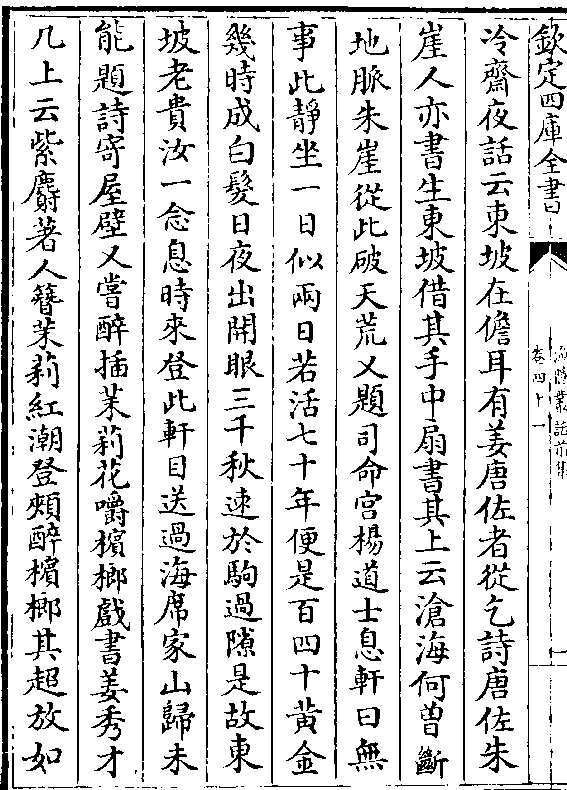 欽定四庫全書
漁隱叢話前集
卷四十一
一
冷齋夜話云東坡在儋耳有姜唐佐者從乞詩唐佐朱
崖人亦書生東坡借其手中扇書其上云滄海何曽斷
地脈朱崖從此破天荒又題司命宫楊道士息軒曰無
事此靜坐一日似兩日若活七十年便是百四十黄金
幾時成白髮日夜出開眼三千秋速於駒過隙是故東
坡老貴汝一念息時來登此軒目送過海席家山歸未
能題詩寄屋壁又嘗醉插茉莉花嚼檳榔戲書姜秀才
几上云紫麝著人簪茉莉紅潮登頰醉檳榔其超放如